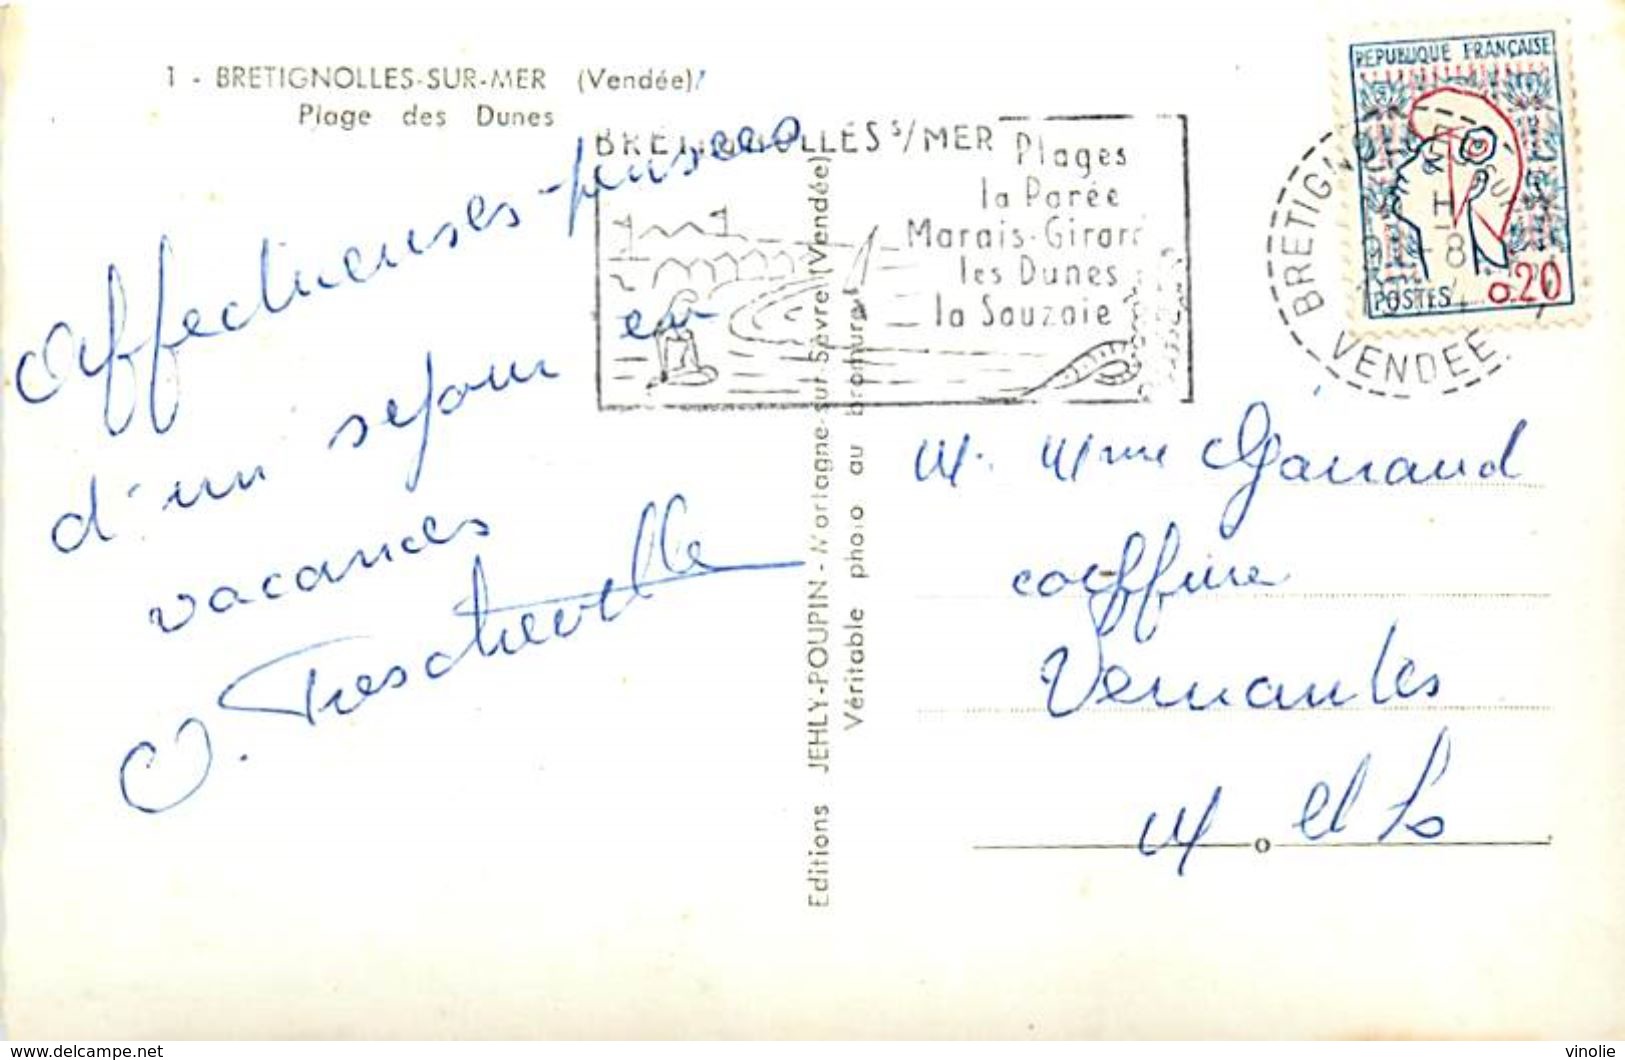 1 - BRETIGNOLLES-SUR-MER (Vendée)
Plage des Dunes
Affectueuses pensées
d'un sejour en
vacances
BRETIGNOLLES S/MER
Plages
la Parée
Marais-Girard
les Dunes
la Sauzaie
REPUBLIQUE FRANÇAISE
POSTES 0,20
BRETIGNOLLES SUR MER
VENDEE
Editions JEHLY-POUPIN - Mortagne-sur-Sèvre (Vendée)
Véritable photo au bromure
M. Mme
coiffure
Vernantes
M et L
www.delcampe.net
vinolie